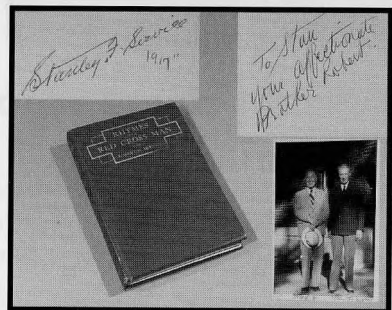 Stanley F. Service
1917"
To Stan
your affectionate
Brother Robert.
RHYMES
RED CROSS MAN